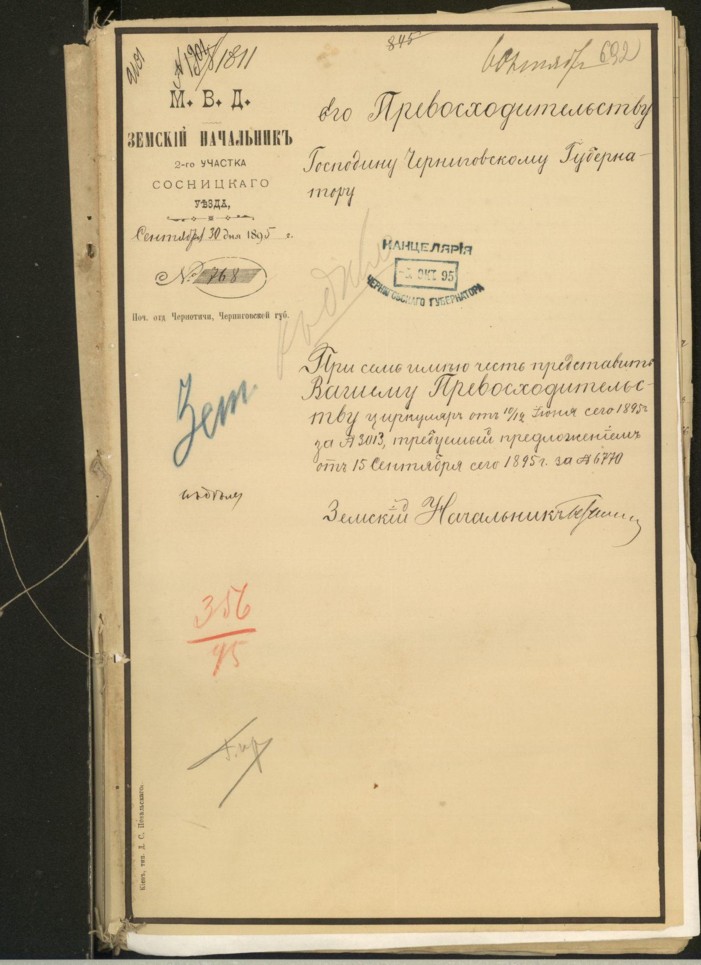 845
692
М. В. Д.
ЗЕМСКІЙ НАЧАЛЬНИКЪ
2-го УЧАСТКА
СОСНИЦКАГО
УѢЗДА,
Сентября 30 дня 1895 г.
№ 768
Поч. отд Чернотичи, Черниговской губ.
Его Превосходительству
Господину Черниговскому Губерна-
тору
КАНЦЕЛЯРІЯ
ОКТ 95
ЧЕРНИГОВСКАГО ГУБЕРНАТОРА
При семъ имѣю честь представить
Вашему Превосходительс-
тву циркуляръ отъ 10/12 Іюня сего 1895г
за № 3013, требуемый предложеніемъ
отъ 15 Сентября сего 1895 г. за № 6770
Земскій Начальникъ
Зем.
356
95
Кіевъ, тип. Д. С. Повальскаго.